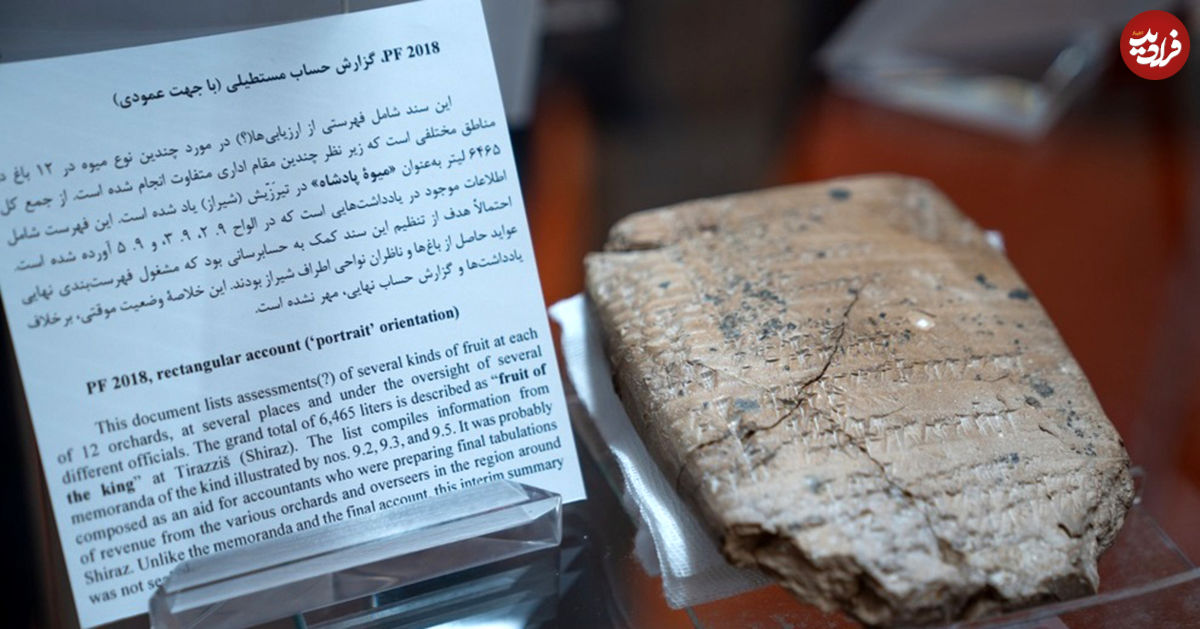 PF 2018، گزارش حساب مستطیلی (با جهت عمودی)
این سند شامل فهرستی از ارزیابی‌ها(؟) در مورد چندین نوع میوه در ۱۲ باغ د
مناطق مختلفی است که زیر نظر چندین مقام اداری متفاوت انجام شده است. از جمع کل
۶۴۶۵ لیتر به‌عنوان «میوهٔ پادشاه» در تیرَزّیش (شیراز) یاد شده است. این فهرست شامل
اطلاعات موجود در یادداشت‌هایی است که در الواح ۹.۲، ۹.۳، و ۹.۵ آورده شده است.
احتمالاً هدف از تنظیم این سند کمک به حسابرسانی بود که مشغول فهرست‌بندی نهایی
عواید حاصل از باغ‌ها و ناظران نواحی اطراف شیراز بودند. این خلاصهٔ وضعیت موقتی، بر خلاف
یادداشت‌ها و گزارش حساب نهایی، مهر نشده است.
PF 2018, rectangular account (‘portrait’ orientation)
This document lists assessments(?) of several kinds of fruit at each
of 12 orchards, at several places and under the oversight of several
different officials. The grand total of 6,465 liters is described as “fruit of
the king” at Tirazziš (Shiraz). The list compiles information from
memoranda of the kind illustrated by nos. 9.2, 9.3, and 9.5. It was probably
composed as an aid for accountants who were preparing final tabulations
of revenue from the various orchards and overseers in the region around
Shiraz. Unlike the memoranda and the final account, this interim summary
was not
فرادید